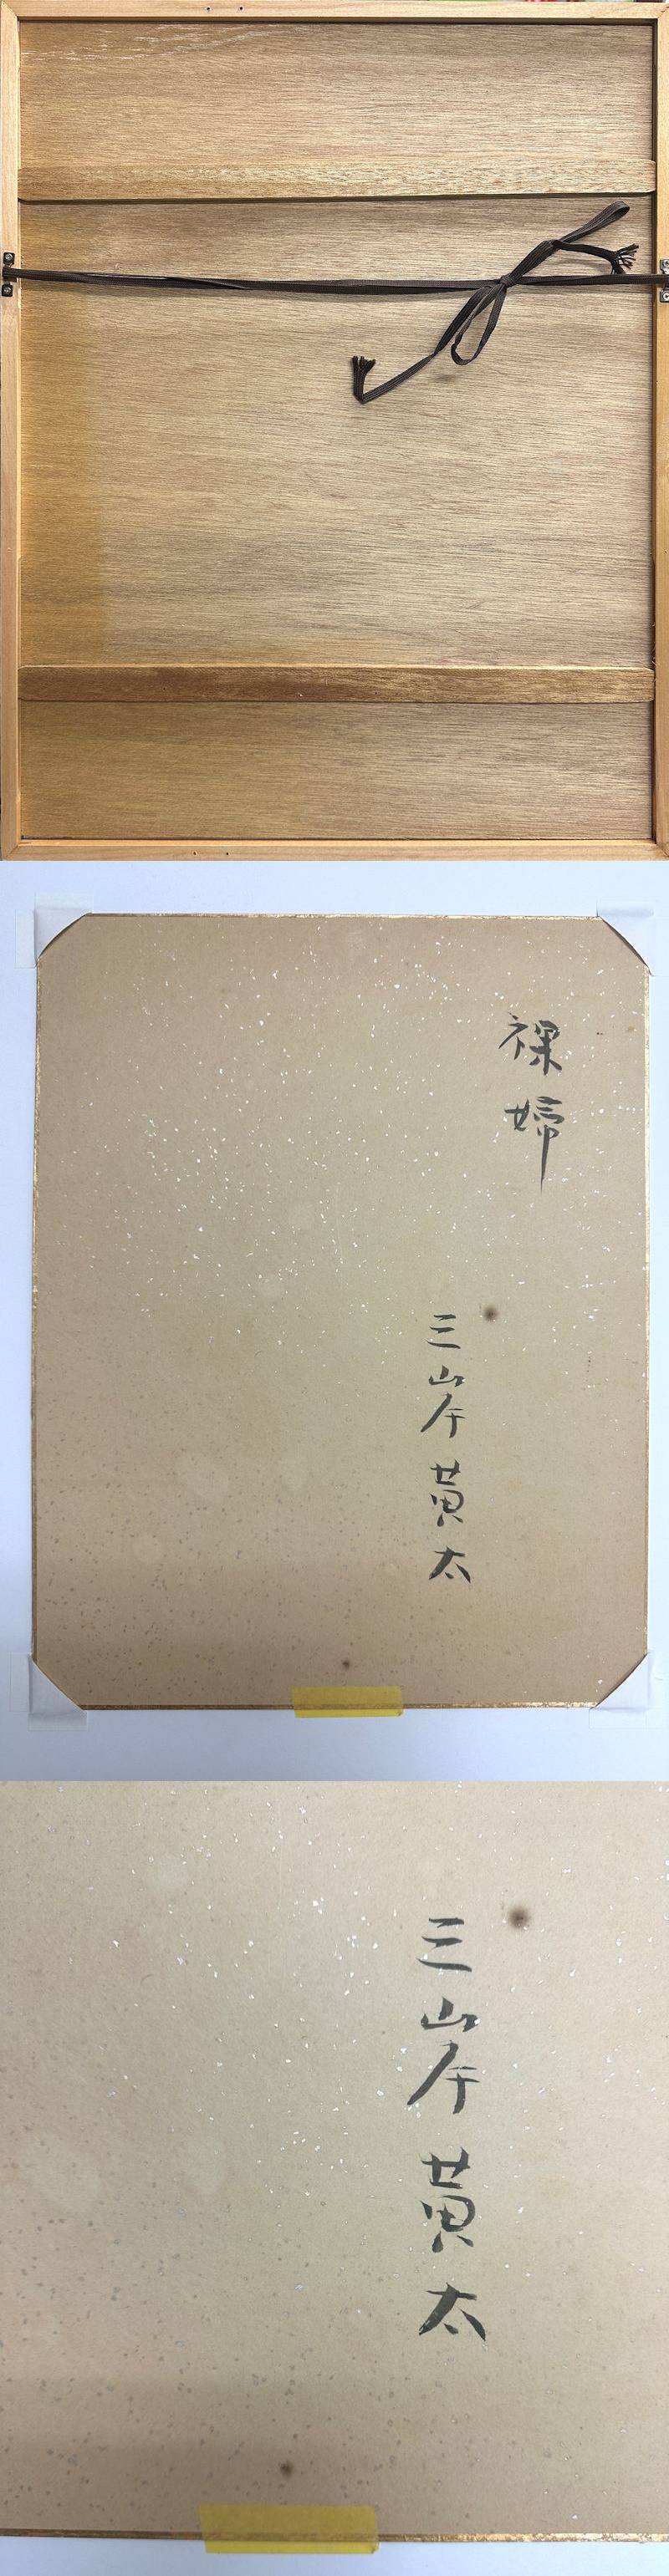 裸婦
三岸黄太
三岸黄太